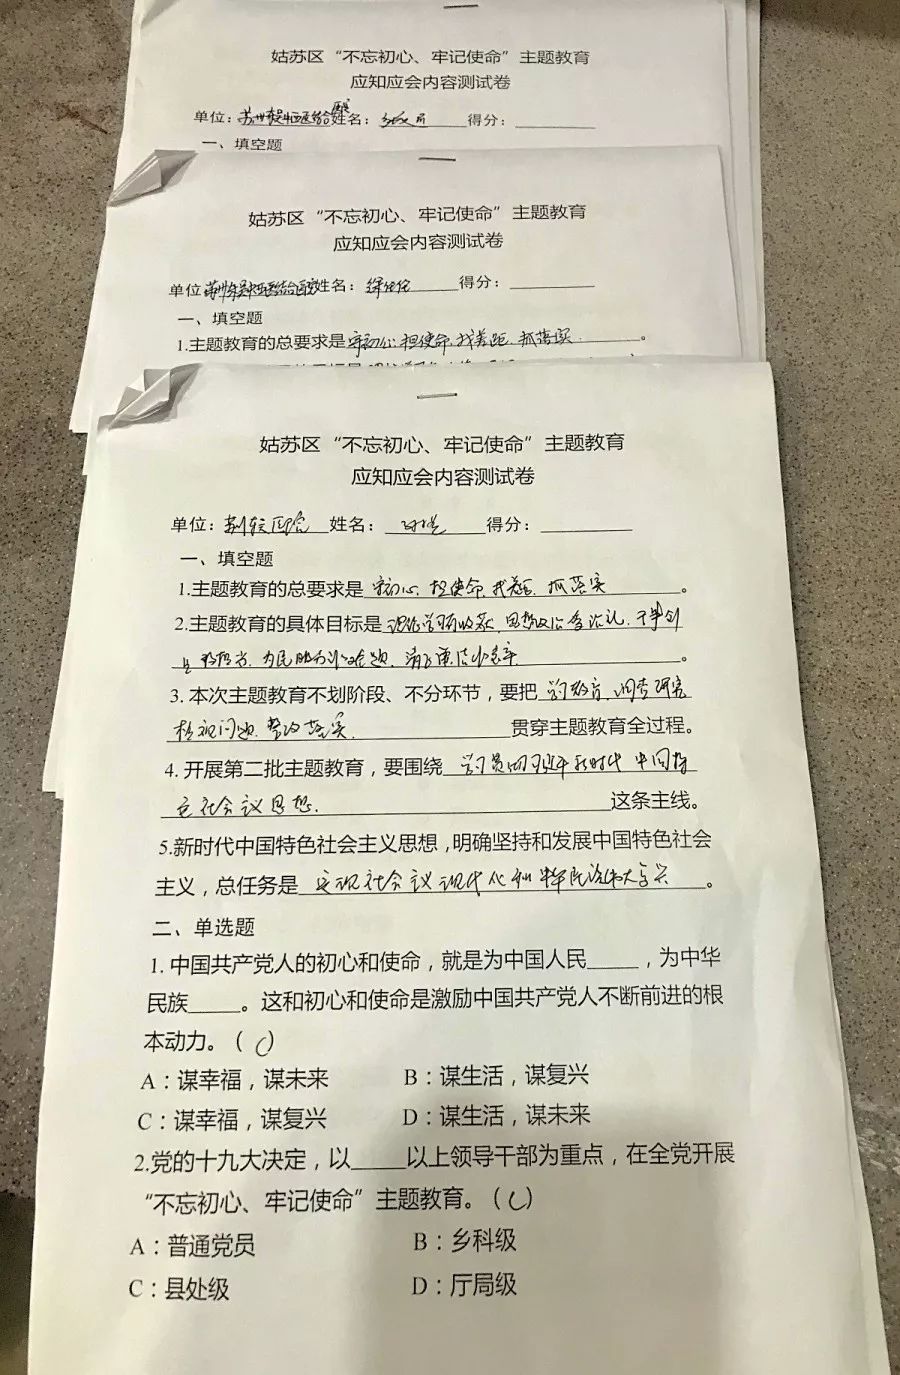 姑苏区“不忘初心、牢记使命”主题教育
应知应会内容测试卷
单位： 姓名： 得分：
一、填空题
姑苏区“不忘初心、牢记使命”主题教育
应知应会内容测试卷
单位 姓名： 得分：
一、填空题
1.主题教育的总要求是守初心、担使命、找差距、抓落实。
姑苏区“不忘初心、牢记使命”主题教育
应知应会内容测试卷
单位： 姓名： 得分：
一、填空题
1.主题教育的总要求是 守初心、担使命、找差距、抓落实。
2.主题教育的具体目标是 理论学习有收获、思想政治受洗礼、干事创
业敢担当、为民服务解难题、清正廉洁作表率。
3. 本次主题教育不划阶段、不分环节，要把 学习教育、调查研究
检视问题、整改落实、贯穿主题教育全过程。
4. 开展第二批主题教育，要围绕 学习贯彻习近平新时代中国特
色社会主义思想、这条主线。
5.新时代中国特色社会主义思想，明确坚持和发展中国特色社会
主义，总任务是 实现社会主义现代化和中华民族伟大复兴。
二、单选题
1. 中国共产党人的初心和使命，就是为中国人民____，为中华
民族____。这和初心和使命是激励中国共产党人不断前进的根
本动力。（ C ）
A：谋幸福，谋未来 B：谋生活，谋复兴
C：谋幸福，谋复兴 D：谋生活，谋未来
2.党的十九大决定，以____以上领导干部为重点，在全党开展
“不忘初心、牢记使命”主题教育。（ C ）
A：普通党员 B：乡科级
C：县处级 D：厅局级